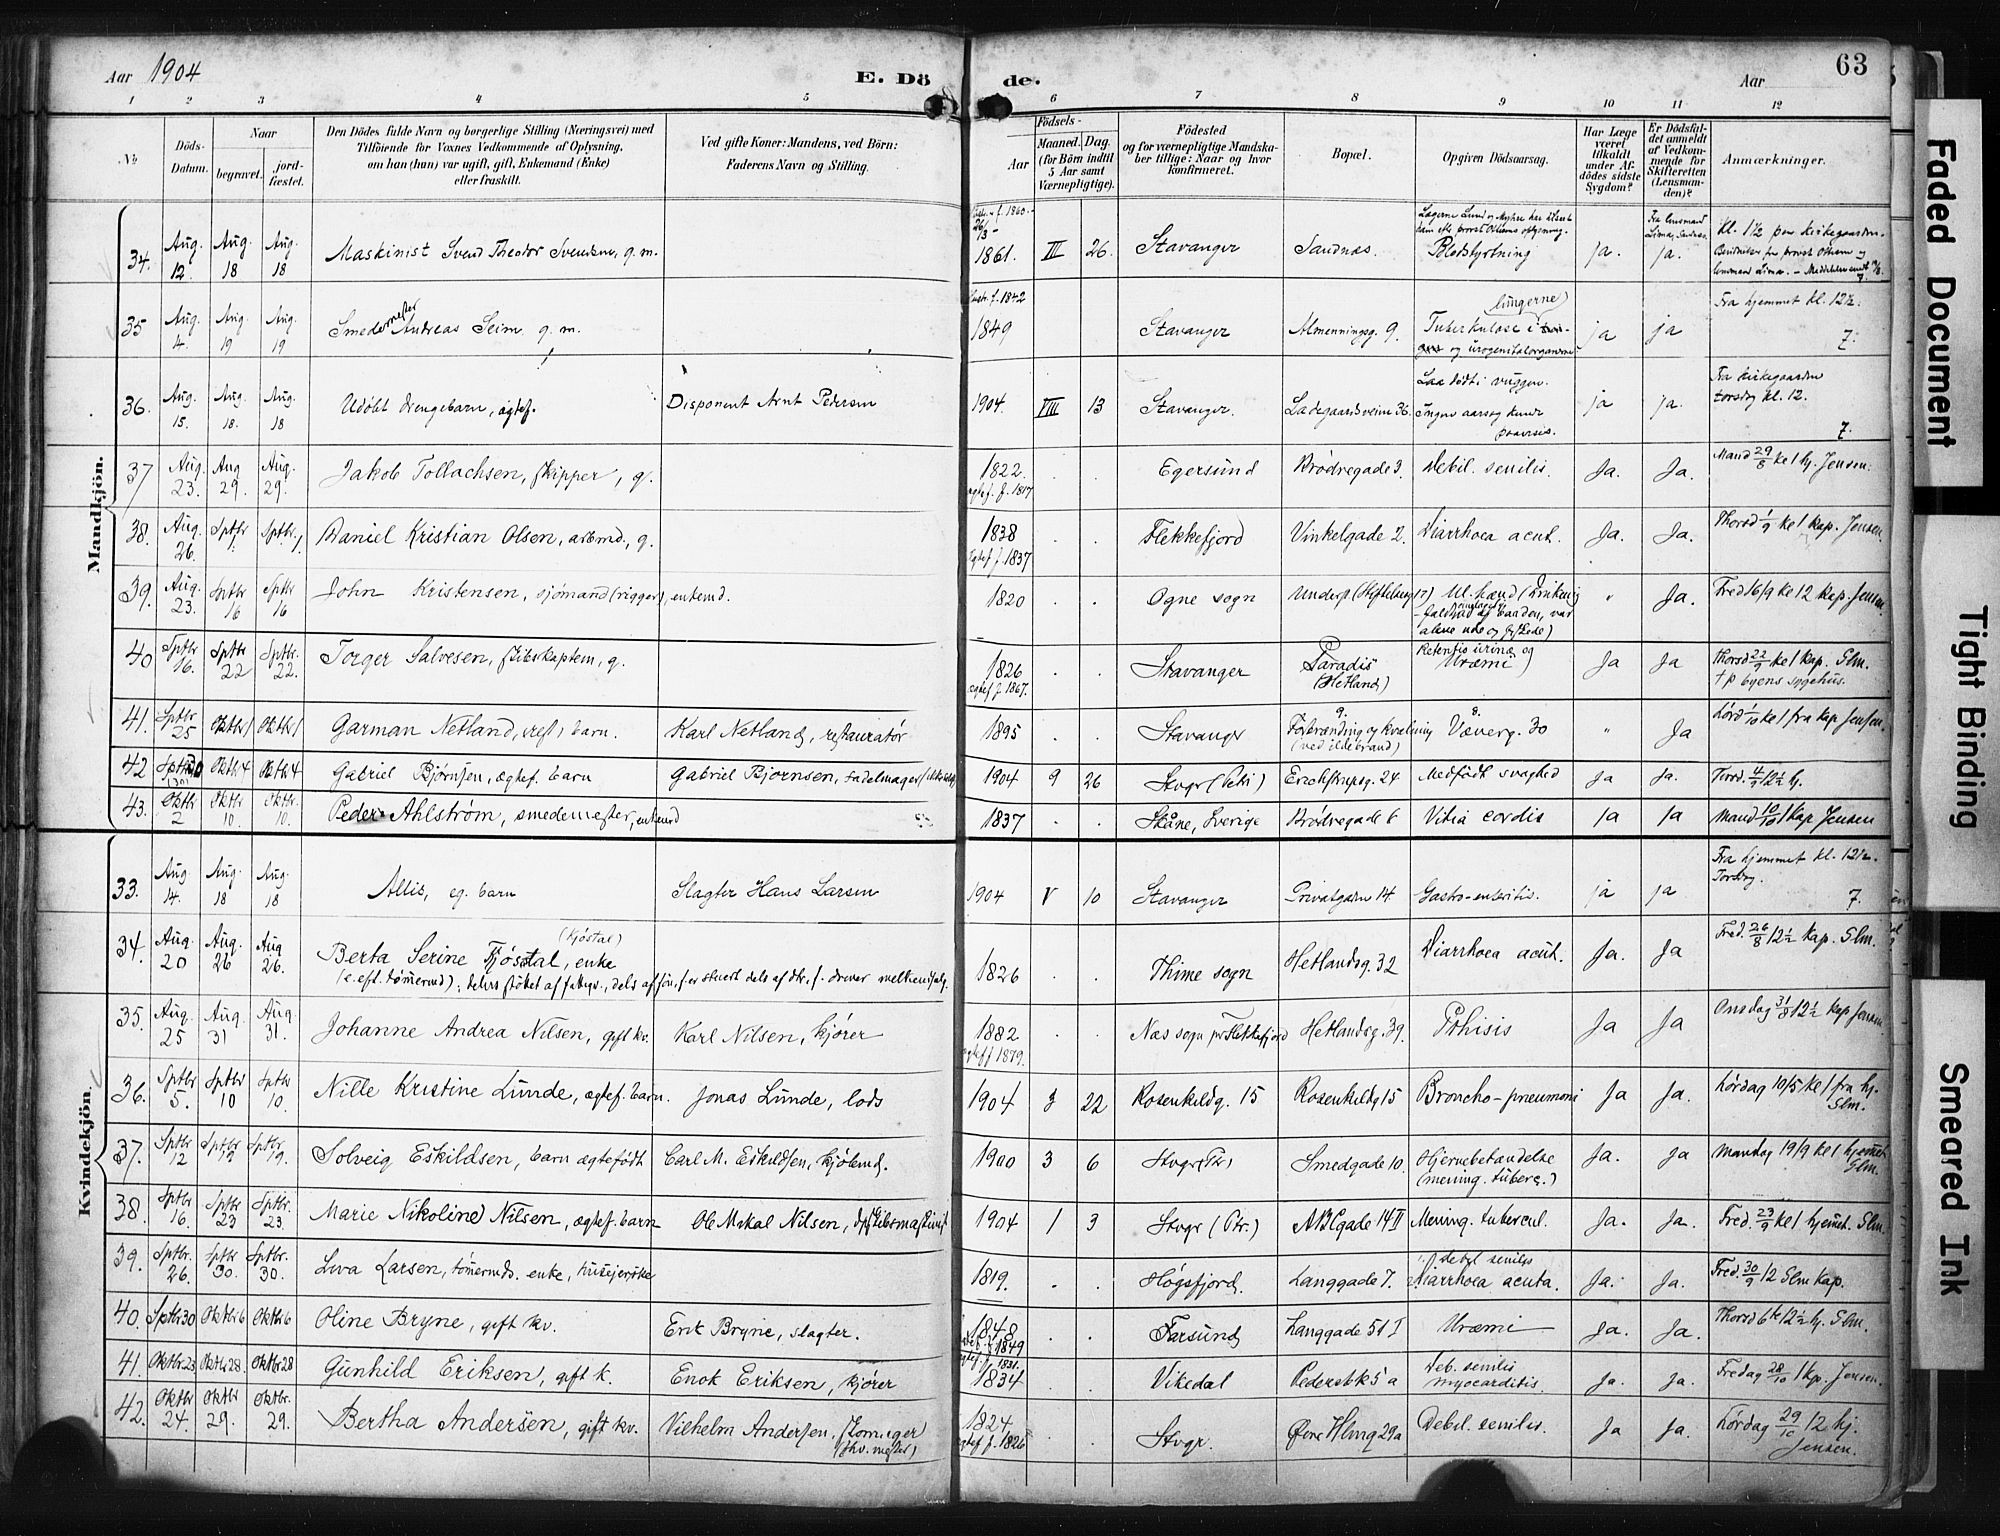 Aar 1904
E. Dö de.
Aar
63
1 2 3 4 5 6 7 8 9 10 11 12
No
Döds-Datum.
Naar
begravet.
jordfæstet.
Den Dödes fulde Navn og borgerlige Stilling (Næringsvei) med
Tilföiende for Voxnes Vedkommende af Oplysning,
om han (hun) var ugift, gift, Enkemand (Enke)
eller fraskilt.
Ved gifte Koner: Mandens, ved Börn:
Faderens Navn og Stilling.
Födsels-
Aar
Maaned. Dag.
(for Börn indtil
5 Aar samt
Værnepligtige).
Födested
og for værnepligtige Mandska-
ber tillige: Naar og hvor
konfirmeret.
Bopæl.
Opgiven Dödsaarsag.
Har Læge
været
tilkaldt
under Af-
dödes sidste
Sygdom?
Er Dödsfal-
det anmeldt
af Vedkom-
mende for
Skifteretten
(Lensman-
den)?
Anmærkninger.
Mandkjön.
34. Aug. 12. Aug 18 Aug 18 Maskinist Svend Theodor Svendsen, g. m. 1861. III 26. Stavanger Sandnæs. Blodstyrtning ja. ja. Kl. 1½ paa kirkegaarden.
35 Aug. 4 Aug 19 Aug. 19 Smedemester Andreas Seim, g. m. 1849 Stavanger Almenningsg. 9. Tuberkulose i lungerne og urogenitalorganerne ja ja Fra hjemmet kl. 12½. 7.
36. Aug. 15. Aug. 18. Aug. 18 Udöbt drengebarn, ægtef. Disponent Arnt Pedersen 1904. VIII 13 Stavanger. Ladegaardsveien 36. Laa dødt i vuggen. Ingen aarsag kunde paavises. ja ja. Fra kirkegaarden torsdag kl. 12. 7.
37 Aug. 23. Aug 29. Aug. 29. Jakob Tollachsen, skipper, g. 1822. ægtef. f. 1817 . . Egersund Brödregade 3. Debil. senilis. Ja. Ja. Mand 29/8 kl 1 hj. Jensen.
38. Aug. 26. Sptbr 1. Sptbr. 1. Daniel Kristian Olsen, arbmd., g. 1838 Ægtef. f. 1837 . . Flekkefjord Vinkelgade 2. Diarrhoea acut. Ja. Ja. Thorsd 1/9 kl 1 kap. Jensen.
39. Aug. 23. Sptbr 16 Sptbr 16 John Kristensen, sjömand (rigger), enkemd. 1820 . . Ogne sogn Ul. hænd (Drukning " Ja. Fred 16/9 kl 12 kap. Jensen
40 Sptbr 16. Sptbr 22 Sptbr. 22. Torger Salvesen, skibskaptein, g. 1826 ægtef f. 1867. . . Stavanger Paradis (Hetland) Retentio urinæ og Uræmi Ja Ja Thorsd 22/9 kl 1 kap. Slm. † p byens sygehus.
41. Sptbr 25 Oktbr 1 Oktbr 1 Garman Netland, barn. Karl Netland, restauratør 1895 . . Stavangr Forbrænding og kvælning (ved ildebrand) Væverg. 30 " Ja Lørd 1/10 kl 1 fra kap Jensen.
42 Oktbr 4 Oktbr 4 Gabriel Bjørnsen, ægtef. barn Gabriel Bjørnsen, sadelmager 1904 9 26 Stvgr (Petri) Erichstrupsg. 24 Medfödt svaghed Ja Ja. Tirsd. 12½ hj.
43. Oktbr 2 Oktbr. 10. Oktbr. 10. Peder Ahlström, smedemester, enkemd 1837 . . Skåne, Sverige Brödregade 6 Vitia cordis Ja Ja Mand 10/10 1 kap Jensen
Kvindekjön.
33. Aug 14. Aug. 18 Aug 18 Allis, eg. barn Slagter Hans Larsen 1904 V 10 Stavanger Privatgaden 14. Gastro-enteritis. ja ja Fra hjemmet kl. 12½. Torsdag. 7.
34. Aug. 20 Aug. 26 Aug 26. Berta Serine Tjöstal, enke (Kjöstal) 1826 . . Thime sogn Hetlandsg. 32 Diarrhoea acut. Ja. Ja Fred. 26/8 12½ kap. Slm.
35. Aug. 25 Aug. 31 Aug. 31. Johanne Andrea Nilsen, gift kv. Karl Nilsen, kjører 1882 ægtef f 1879. . . Næs sogn pr Flekkefjord Hetlandsg. 39. Pthisis Ja Ja Onsdag 31/8 12½ kap Jensen
36. Sptbr 5. Sptbr 10 Sptbr 10. Nille Kristine Lunde, ægtef. barn. Jonas Lunde, lods 1904 3 22 Rosenkildg. 15 Rosenkildg 15 Broncho-pneumoni Ja Ja. Lördag 10/5 kl 1 fra hj. Slm.
37. Sptbr 12 Sptbr 19 Sptbr 19. Solveig Eskildsen, barn ægtefödt Carl M. Eskildsen, kjølemd. 1900 3 6 Stvgr (Ptr) Smedgade 10. Hjernebetændelse (mening. tuberc.) Ja. Ja Mandag 19/9 kl 1 hjemmet Slm.
38. Sptbr 16. Sptbr 23 Sptbr 23. Marie Nikoline Nilsen, ægtef. barn Ole Mikal Nilsen, dpskibsmaskinist 1904 1 3 Stvgr (Ptr.) ABCgade 14 II Mening. tubercul. Ja. Ja. Fred. 23/9 kl 1 hjemt. Slm.
39. Sptbr. 26 Sptbr 30. Sptbr. 30. Lava Larsen, tömermds. enke, husejerske 1819. . . Högsfjord. Langgade 7. debil senilis Diarrhoea acuta. Ja. Ja. Fred. 30/9 12 Slm kap.
40. Sptbr 30 Oktbr 6 Oktbr 6 Oline Bryne, gift kv. Erik Bryne, slagter. 1848 1849 . . Farsund Langgade 51 I Uræmi Ja. Ja. Thorsd 6te 12½ hj. Slm.
41. Oktbr. 23 Oktbr 28. Oktbr 28 Gunhild Eriksen, gift k. Enok Eriksen, kjører ægtef f 1831. 1834 . . Vikedal Pedersbk 5 a Deb. senilis myocarditis. Ja. Ja. Fredag 28/10 1 kp. Jensen.
42. Oktbr 24. Oktbr 29. Oktbr. 29. Bertha Andersen, gift kv. Vilhelm Andersen, 1824 ægtef f. 1826 . . Stvgr. Øvre Hlmg 29a Debil. senilis. Ja Ja. Lördag 29/10 12 hj. Jensen.
Faded Document
Tight Binding
Smeared Ink